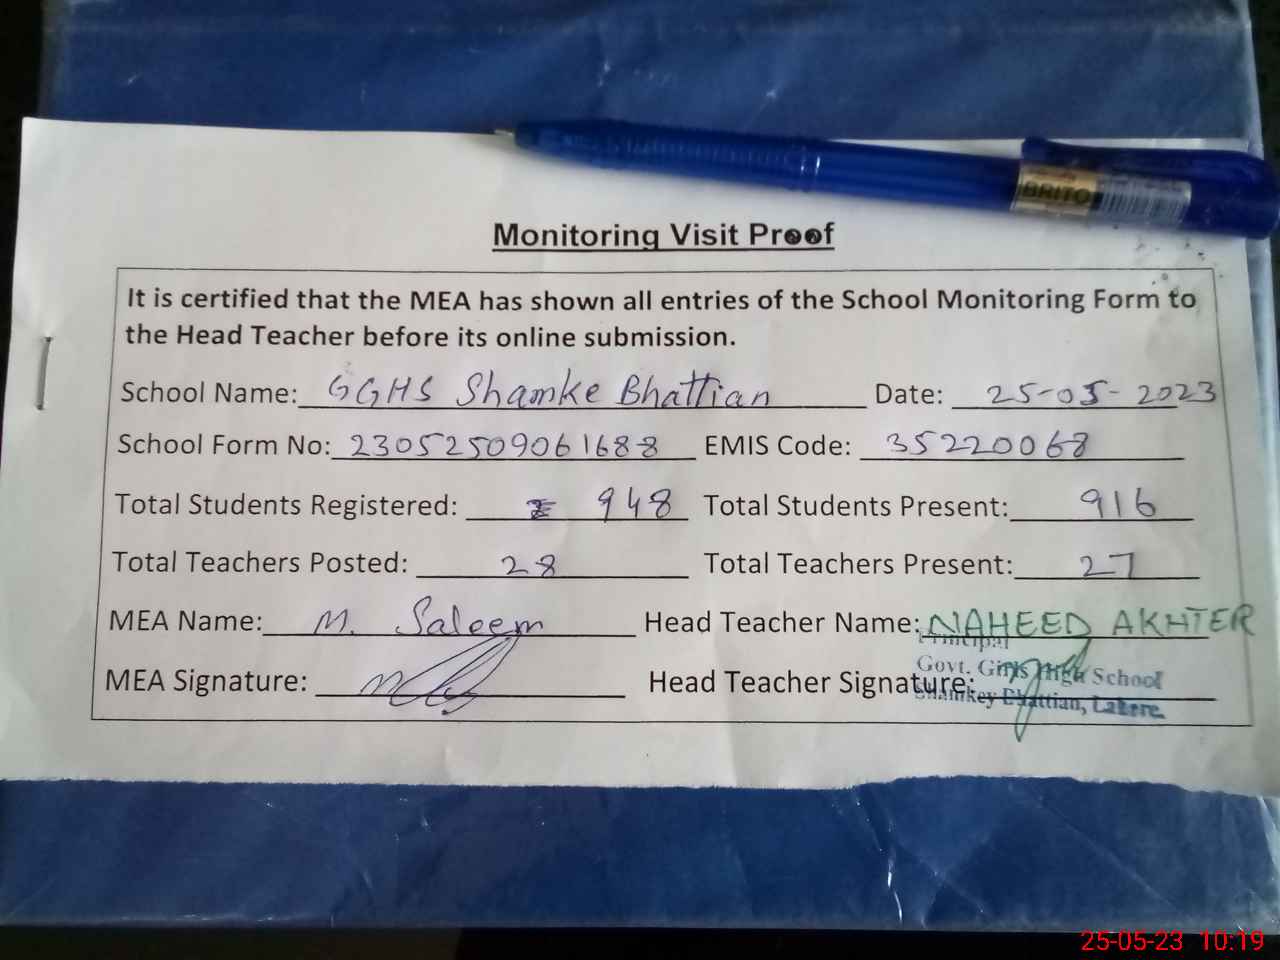 BRITO
Monitoring Visit Proof
It is certified that the MEA has shown all entries of the School Monitoring Form to
the Head Teacher before its online submission.
School Name: GGHS Shamke Bhattian Date: 25-05-2023
School Form No: 23052509061688 EMIS Code: 35220068
Total Students Registered: 948 Total Students Present: 916
Total Teachers Posted: 28 Total Teachers Present: 27
MEA Name: M. Saleem Head Teacher Name: NAHEED AKHTER
Principal
Govt. Girls High School
MEA Signature: Head Teacher Signature:
Shamkey Bhattian, Lahore.
25-05-23 10:19